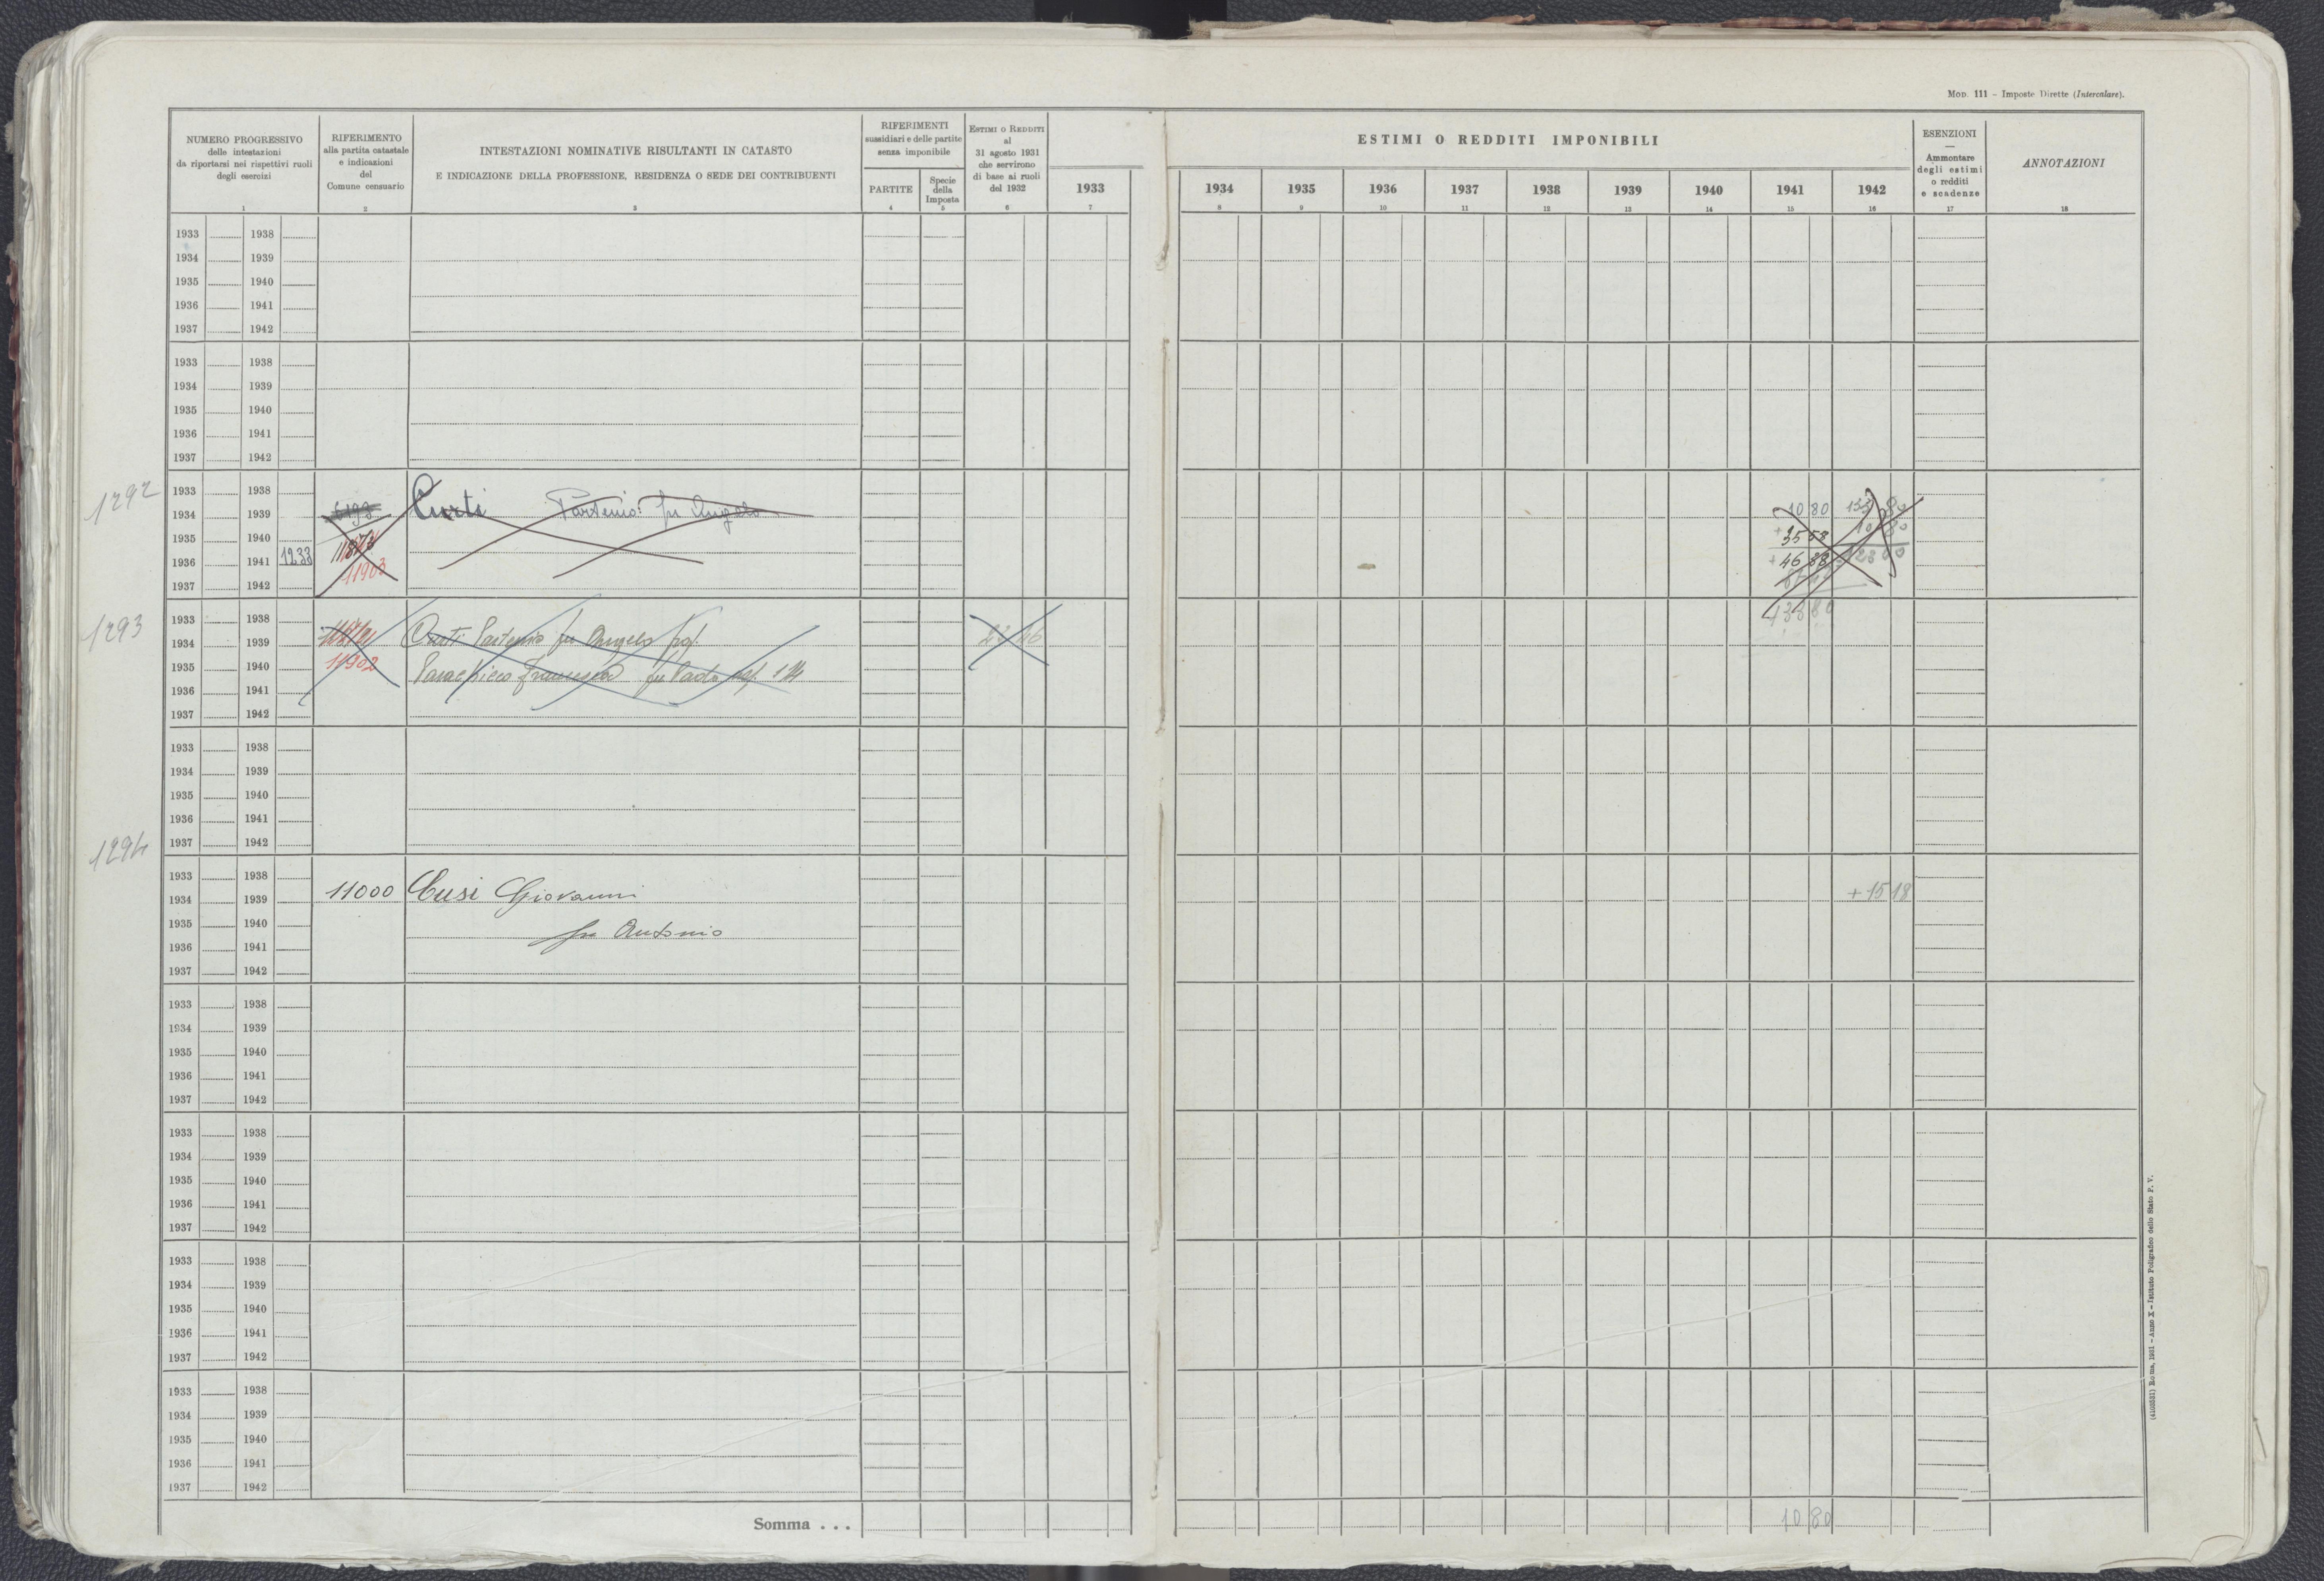 MOD. 111 – Imposte Dirette (Intercalare).
NUMERO PROGRESSIVO
delle intestazioni
da riportarsi nei rispettivi ruoli
degli esercizi
1
RIFERIMENTO
alla partita catastale
e indicazioni
del
Comune censuario
2
INTESTAZIONI NOMINATIVE RISULTANTI IN CATASTO
E INDICAZIONE DELLA PROFESSIONE, RESIDENZA O SEDE DEI CONTRIBUENTI
3
RIFERIMENTI
sussidiari e delle partite
senza imponibile
PARTITE
4
Specie
della
Imposta
5
ESTIMI O REDDITI
al
31 agosto 1931
che servirono
di base ai ruoli
del 1932
6
ESTIMI O REDDITI IMPONIBILI
1933 1934 1935 1936 1937 1938 1939 1940 1941 1942
7 8 9 10 11 12 13 14 15 16
ESENZIONI
—
Ammontare
degli estimi
o redditi
e scadenze
17
ANNOTAZIONI
18
1933 1938
1934 1939
1935 1940
1936 1941
1937 1942
1933 1938
1934 1939
1935 1940
1936 1941
1937 1942
1292
1933 1938
1934 1939 Curti Partenio fu Angelo 10 80
1935 1940 + 35 58
1936 1941 1233 11903 + 46 88
1937 1942
13880
1293
1933 1938
1934 1939 Curti Partenio fu Angelo 23 46
1935 1940 11902 Francesca fu Paolo
1936 1941
1937 1942
1933 1938
1934 1939
1935 1940
1936 1941
1937 1942
1294
1933 1938
1934 1939 11000 Cusi Giovanni + 15 18
1935 1940 fu Antonio
1936 1941
1937 1942
1933 1938
1934 1939
1935 1940
1936 1941
1937 1942
1933 1938
1934 1939
1935 1940
1936 1941
1937 1942
1933 1938
1934 1939
1935 1940
1936 1941
1937 1942
1933 1938
1934 1939
1935 1940
1936 1941
1937 1942
Somma . . . 10 80
(4103531) Roma, 1931 - Anno X - Istituto Poligrafico dello Stato P. V.